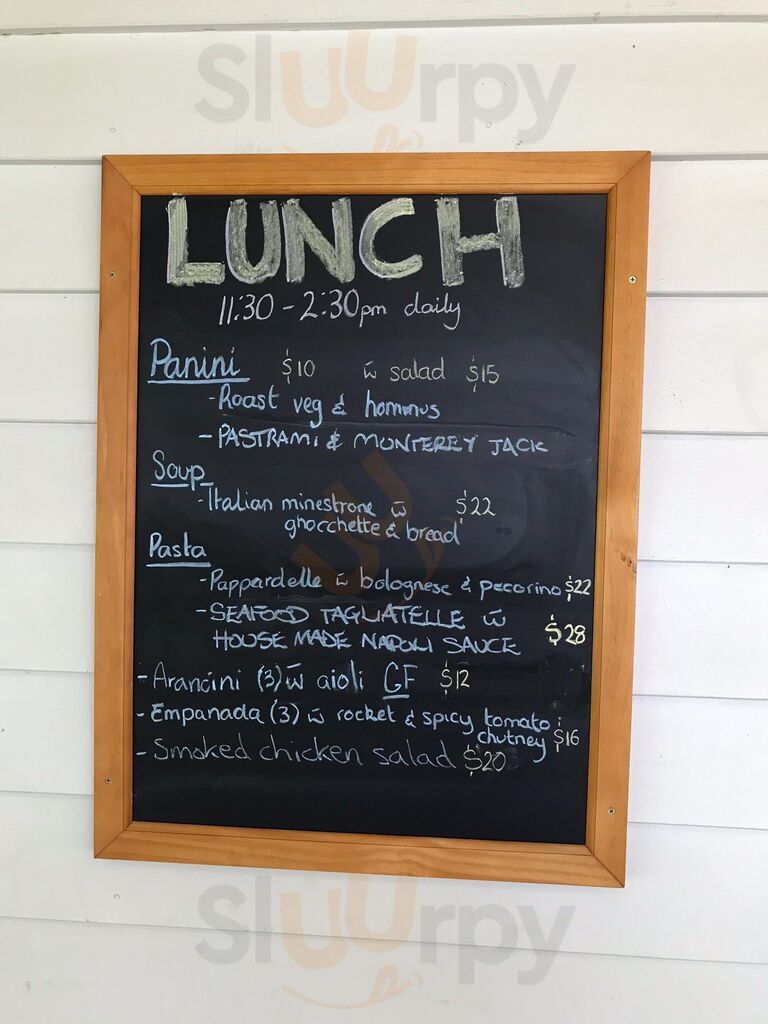 SlUUrpy
LUNCH
11:30 - 2:30pm daily
Panini $10 w̄ salad $15
- Roast veg & hommus
- PASTRAMI & MONTEREY JACK
Soup
- Italian minestrone w̄ $22
gnocchette & bread
Pasta
- Pappardelle w̄ bolognese & pecorino $22
- SEAFOOD TAGLIATELLE w̄
HOUSE MADE NAPOLI SAUCE $28
- Arancini (3) w̄ aioli GF $12
- Empanada (3) w̄ rocket & spicy tomato
chutney $16
- Smoked chicken salad $20
SlUUrpy